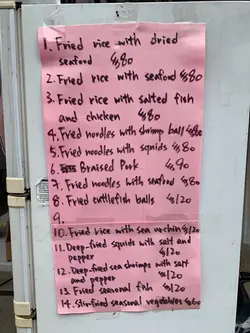 1. Fried rice with dried
seafood $80
2. Fried rice with seafood $80
3. Fried rice with salted fish
and chicken $80
4. Fried noodles with shrimp ball $80
5. Fried noodles with squids $80
6. Braised Pork $90
7. Fried noodles with seafood $80
8. Fried cuttlefish balls $120
9.
10. Fried rice with sea urchin $120
11. Deep-fried squids with salt and
pepper $120
12. Deep-fried sea shrimps with salt
and pepper $120
13. Fried seasonal fish $120
14. Stir-fried seasonal vegetables $60